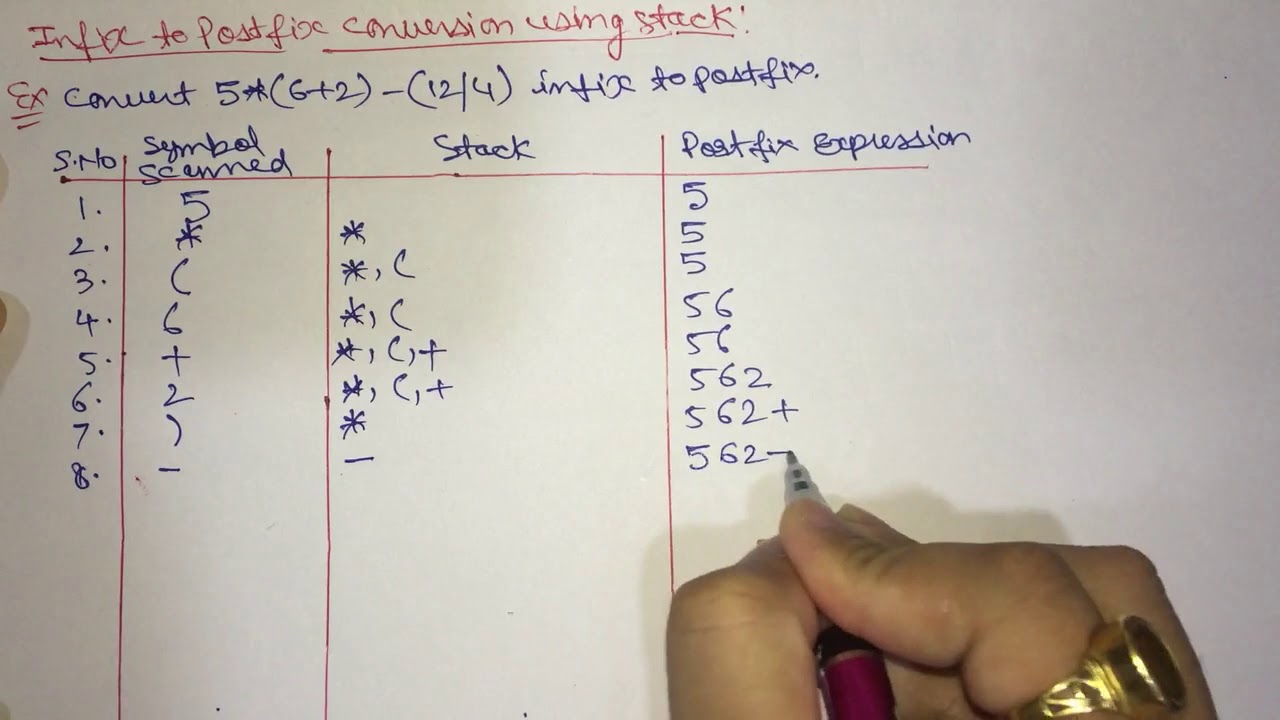 Infix to Postfix conversion using stack:
Ex Convert 5*(6+2)-(12/4) infix to postfix.
S.No Symbol Scanned Stack Postfix Expression
1. 5 5
2. * * 5
3. ( *, ( 5
4. 6 *, ( 56
5. + *, (,+ 56
6. 2 *, (,+ 562
7. ) * 562+
8. - - 562-